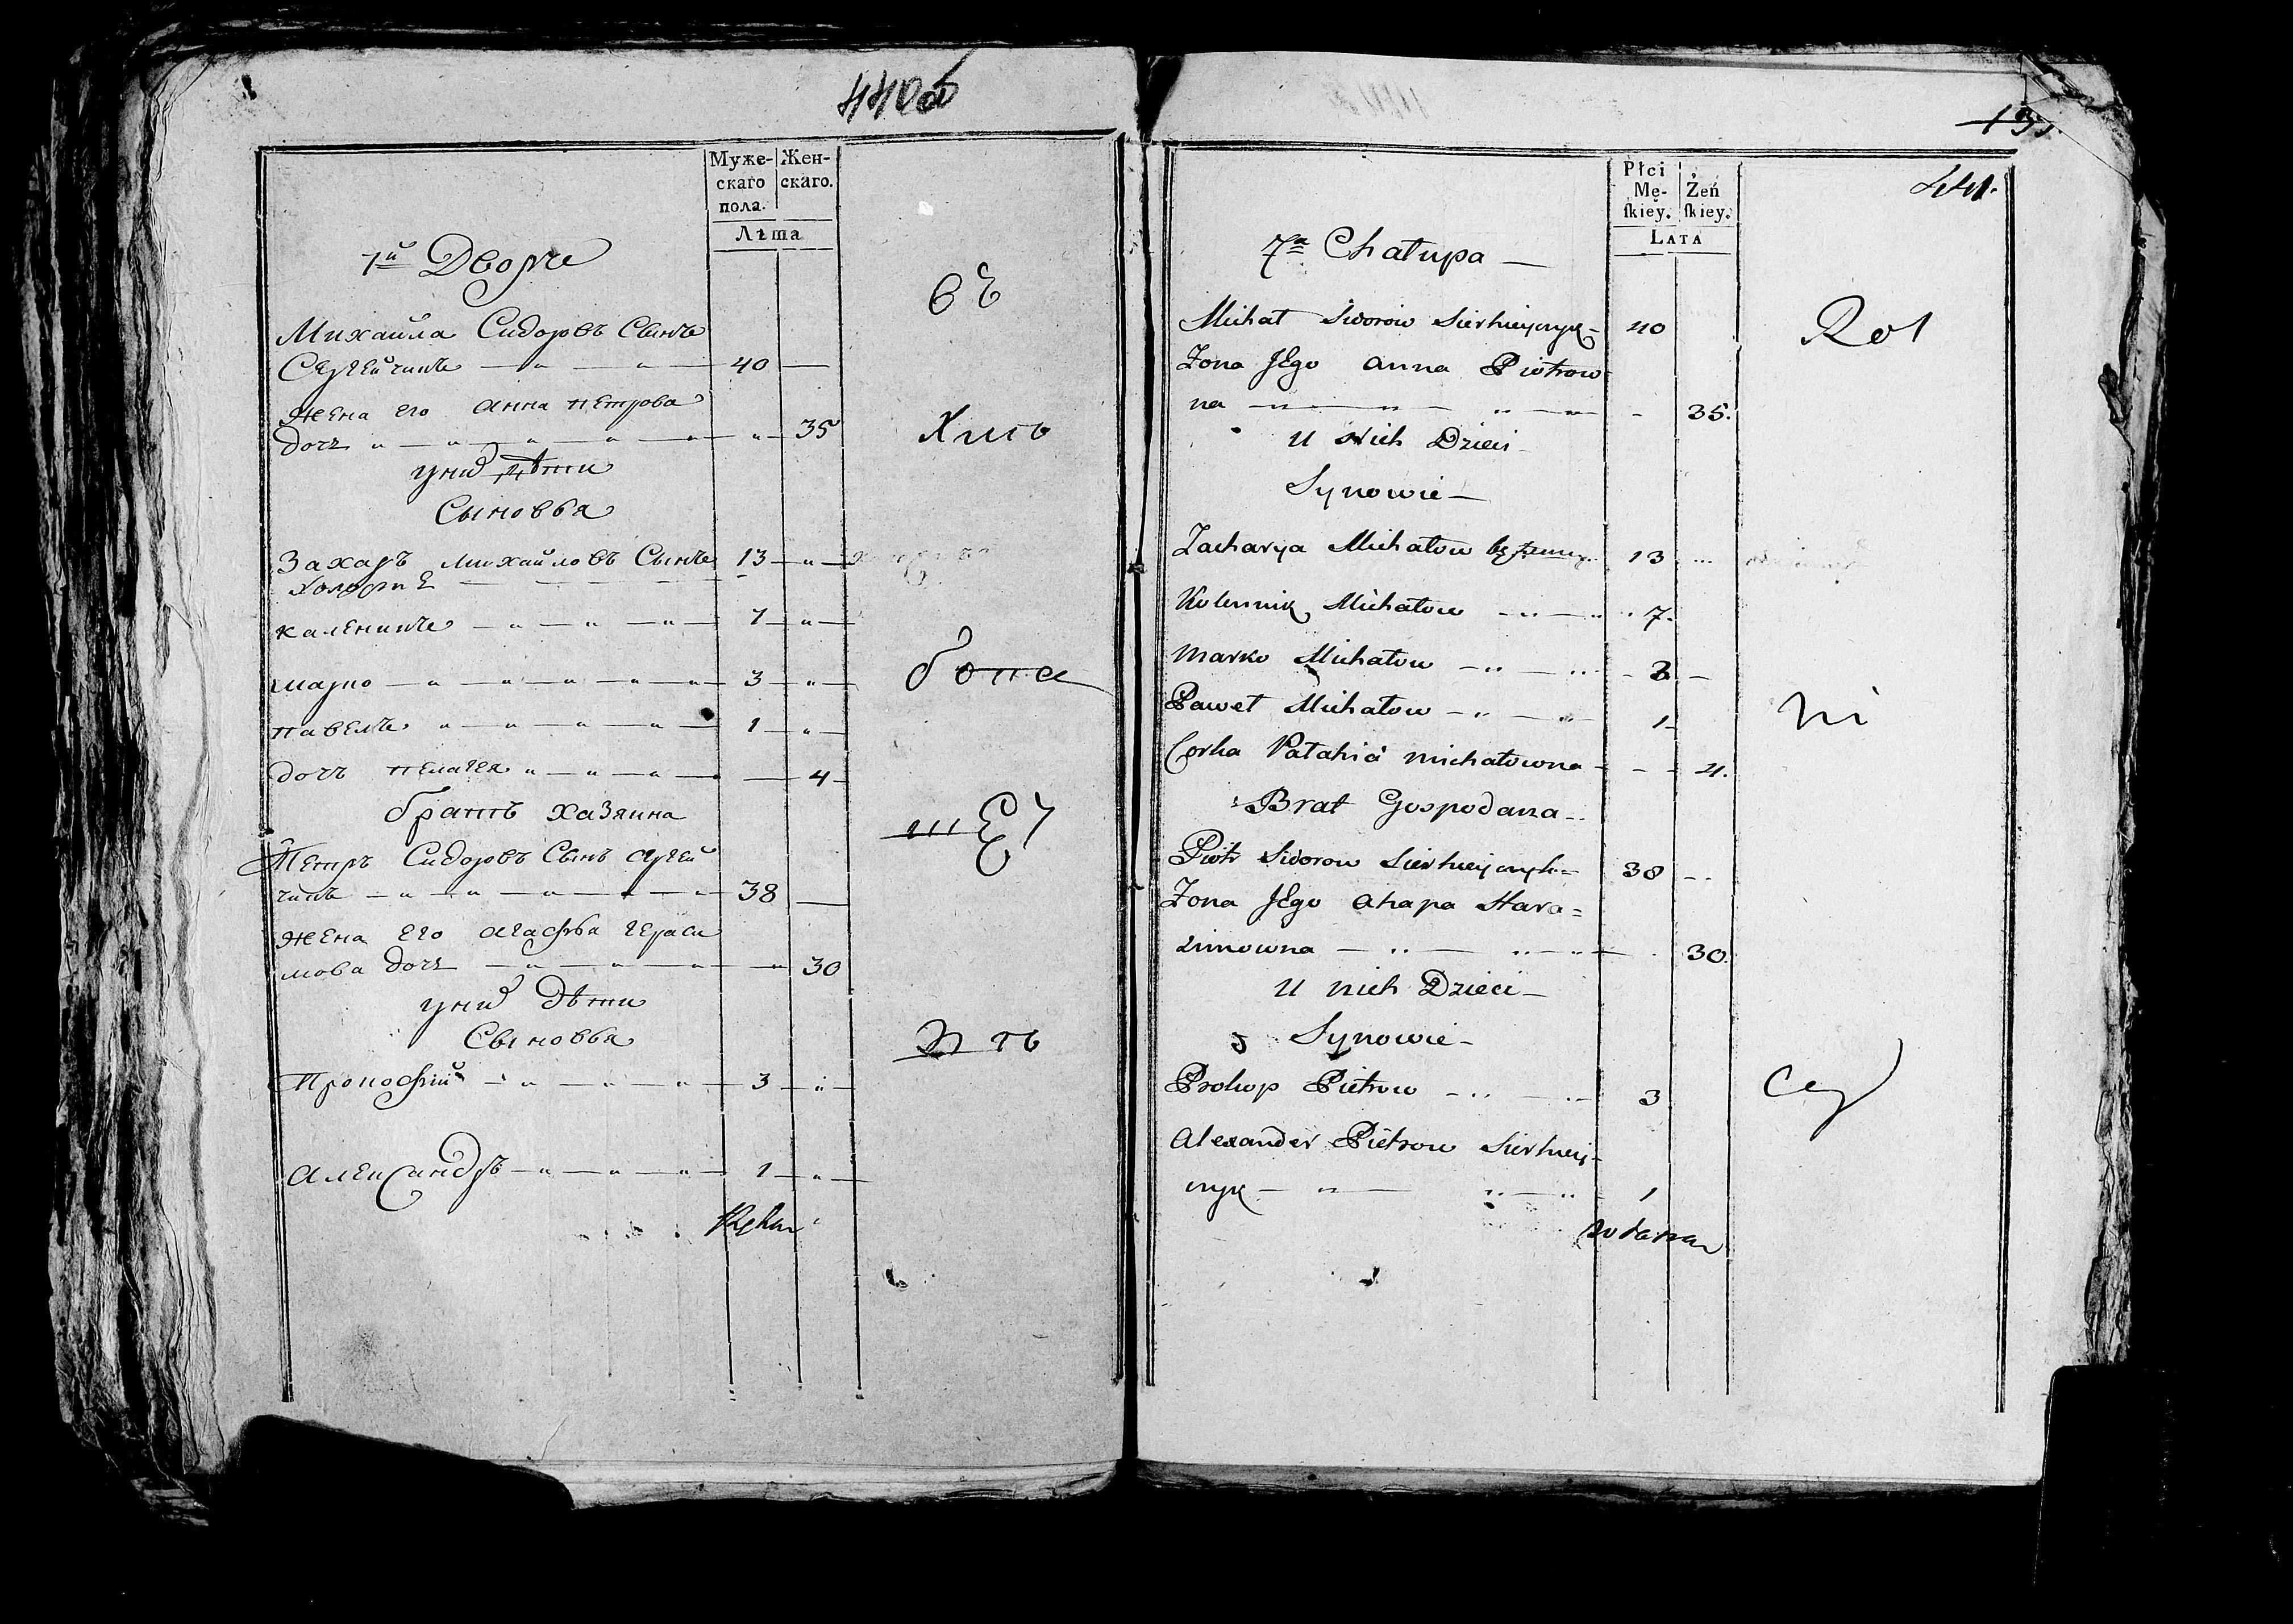 440об
Муже-
скаго
пола.
Жен-
скаго.
Лѣта
7й Дворъ
Михайла Сидоровъ Сынъ
Сергейчикъ 40
Жена его анна петрова
дочь 35
уних дѣти
Сыновья
Захаръ Михайловъ Сынъ 13
холостъ
каленикъ 7
марко 3
павелъ 1
дочь пелагея 4
братъ хазяина
Петръ Сидоровъ Сынъ сергей
чикъ 38
Жена его агафья гераси
мова дочь 30
уних дѣти
Сыновья
Прокофий 3
александръ 1
Ręką
въ
Хлѣ
бопа
ше
ствъ
135.
441.
Płci
Mę-
skiey.
Żeń
skiey.
LATA
7a Chałupa
Michał Sidorow Sierhiejczyk 40
Żona JEgo anna Piotrow
na 35.
U Nich Dzieci
Synowie
Zacharya Michałow 13
Kolennik Michałow 7.
Marko Michałow 3
Paweł Michałow 1
Corka Pałahia michałowna 4.
Brat Gospodarza
Piotr Sidorow Sierhiejczyk 38
Żona JEgo ahapa Hara=
simowna 30.
U nich Dzieci
Synowie
Prokop Pietrow 3
alexander Pietrow Sierhiej
czyk 1
własną
Rol
ni
cy